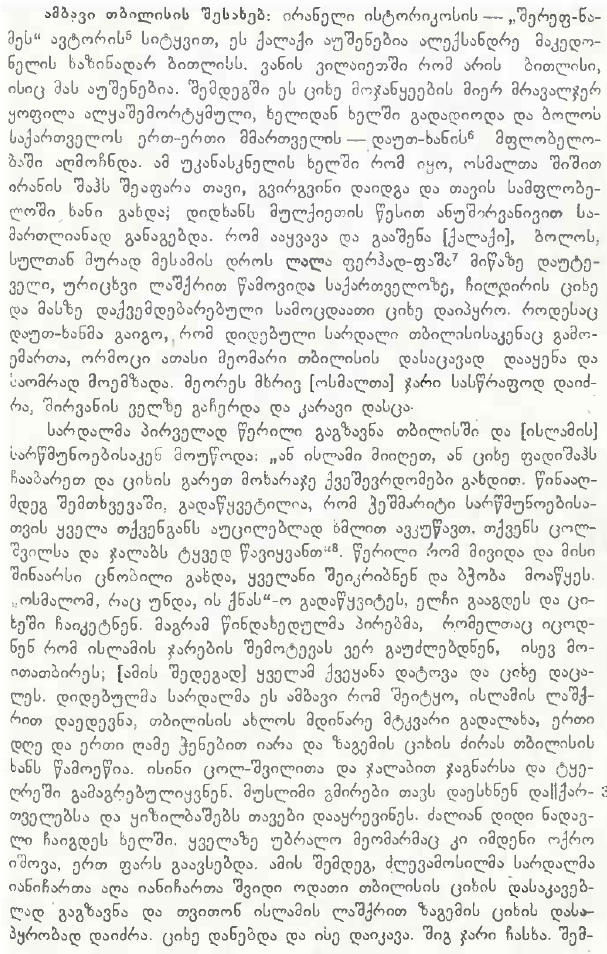 ამბავი თბილისის შესახებ: ირანელი ისტორიკოსის — „შერეფ-ნა-
მეს“ ავტორის⁵ სიტყვით, ეს ქალაქი აუშენებია ალექსანდრე მაკედო-
ნელის ხაზინადარ ბითლისს. ვანის ვილაიეთში რომ არის ბითლისი,
ისიც მას აუშენებია. შემდეგში ეს ციხე მოჯანყეების მიერ მრავალჯერ
ყოფილა ალყაშემორტყმული, ხელიდან ხელში გადადიოდა და ბოლოს
საქართველოს ერთ-ერთი მმართველის — დაუთ-ხანის⁶ მფლობელო-
ბაში აღმოჩნდა. ამ უკანასკნელის ხელში რომ იყო, ოსმალთა შიშით
ირანის შაჰს შეაფარა თავი, გვირგვინი დაიდგა და თავის სამფლობე-
ლოში ხანი გახდა; დიდხანს მულქიეთის წესით ანუშირვანივით სა-
მართლიანად განაგებდა. რომ ააყვავა და გააშენა [ქალაქი], ბოლოს,
სულთან მურად მესამის დროს ლალა ფერჰად-ფაშა⁷ მიწაზე დაუტე-
ველი, ურიცხვი ლაშქრით წამოვიდა საქართველოზე, ჩილდირის ციხე
და მასზე დაქვემდებარებული სამოცდაათი ციხე დაიპყრო. როდესაც
დაუთ-ხანმა გაიგო, რომ დიდებული სარდალი თბილისისაკენაც გამო-
ემართა, ორმოცი ათასი მეომარი თბილისის დასაცავად დააყენა და
საომრად მოემზადა. მეორეს მხრივ [ოსმალთა] ჯარი სასწრაფოდ დაიძ-
რა, შირვანის ველზე გაჩერდა და კარავი დასცა.
სარდალმა პირველად წერილი გაგზავნა თბილისში და [ისლამის]
სარწმუნოებისაკენ მოუწოდა: „ან ისლამი მიიღეთ, ან ციხე ფადიშაჰს
ჩააბარეთ და ციხის გარეთ მოხარაჯე ქვეშევრდომები გახდით. წინააღ-
მდეგ შემთხვევაში, გადაწყვეტილია, რომ ჭეშმარიტი სარწმუნოებისა-
თვის ყველა თქვენგანს აუცილებლად ხმლით ავკუწავთ, თქვენს ცოლ-
შვილსა და ჯალაბს ტყვედ წავიყვანთ“⁸. წერილი რომ მივიდა და მისი
შინაარსი ცნობილი გახდა, ყველანი შეიკრიბნენ და ბჭობა მოაწყეს.
„ოსმალომ, რაც უნდა, ის ქნას“-ო გადაწყვიტეს, ელჩი გააგდეს და ცი-
ხეში ჩაიკეტნენ. მაგრამ წინდახედულმა პირებმა, რომელთაც იცოდ-
ნენ რომ ისლამის ჯარების შემოტევას ვერ გაუძლებდნენ, ისევ მო-
ითათბირეს; [ამის შედეგად] ყველამ ქვეყანა დატოვა და ციხე დაცა-
ლეს. დიდებულმა სარდალმა ეს ამბავი რომ შეიტყო, ისლამის ლაშქ-
რით დაედევნა, თბილისის ახლოს მდინარე მტკვარი გადალახა, ერთი
დღე და ერთი ღამე ჭენებით იარა და ზაგემის ციხის ძირას თბილისის
ხანს წამოეწია. ისინი ცოლ-შვილითა და ჯალაბით ჯაგნარსა და ტყე-
ღრეში გამაგრებულიყვნენ. მუსლიმი გმირები თავს დაესხნენ და||ქარ- 3
თველებსა და ყიზილბაშებს თავები დააყრევინეს. ძალიან დიდი ნადავ-
ლი ჩაიგდეს ხელში. ყველაზე უბრალო მეომარმაც კი იმდენი ოქრო
იშოვა, ერთ ფარს გაავსებდა. ამის შემდეგ, ძლევამოსილმა სარდალმა
იანიჩართა აღა იანიჩართა შვიდი ოდათი თბილისის ციხის დასაკავებ-
ლად გაგზავნა და თვითონ ისლამის ლაშქრით ზაგემის ციხის დასა-
პყრობად დაიძრა. ციხე დანებდა და ისე დაიკავა. შიგ ჯარი ჩასხა. შემ-